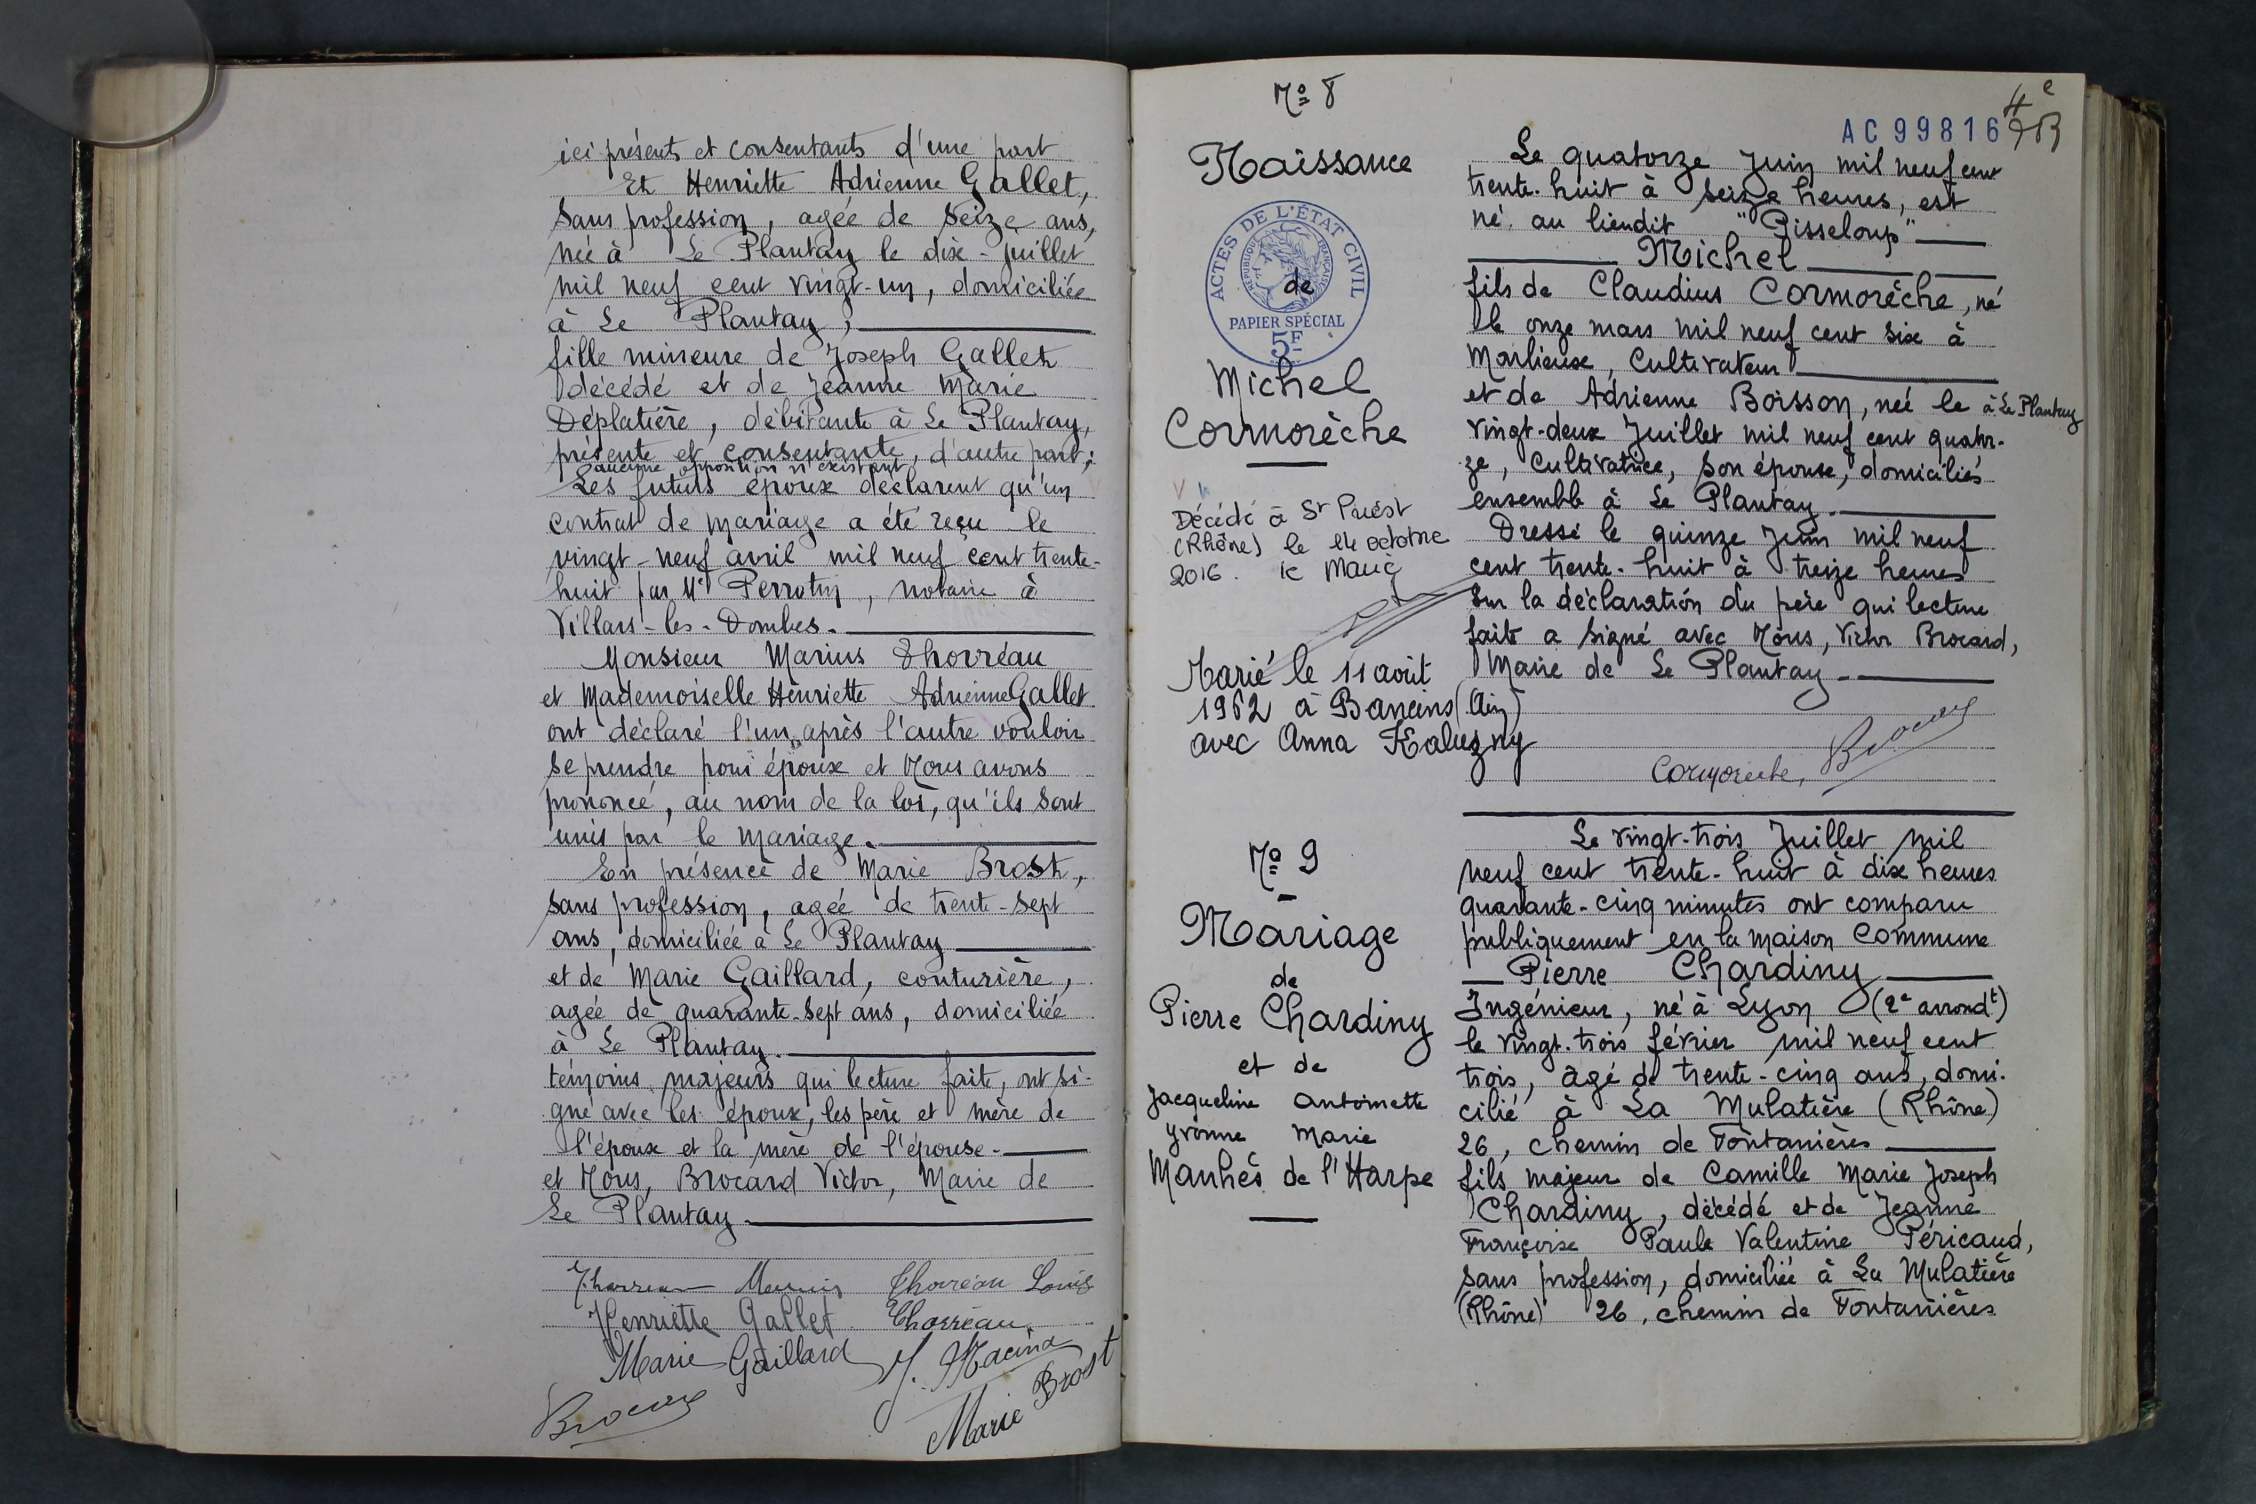 ici présents et consentants d'une part
Et Henriette Adrienne Gallet,
sans profession, agée de seize ans,
née à Le Plantay le dix-juillet
mil neuf cent vingt-un, domiciliée
à Le Plantay,
fille mineure de Joseph Gallet
décédé et de Jeanne Marie
Déplatière, débitante à Le Plantay,
présente et consentante, d'autre part;
aucune opposition n'existant
Les futurs époux déclarent qu'un
contrat de mariage a été reçu le
vingt-neuf avril mil neuf cent trente-
huit par Me Perrotin, notaire à
Villars-les-Dombes.
Monsieur Marius Thorréau
et Mademoiselle Henriette Adrienne Gallet
ont déclaré l'un après l'autre vouloir
se prendre pour époux et Nous avons
prononcé, au nom de la loi, qu'ils sont
unis par le mariage.
En présence de Marie Brost,
sans profession, agée de trente-sept
ans, domiciliée à Le Plantay
et de Marie Gaillard, couturière,
agée de quarante-sept ans, domiciliée
à Le Plantay.
témoins majeurs qui lecture faite, ont si-
gné avec les époux, les père et mère de
l'époux et la mère de l'épouse.
et Nous, Brocard Victor, Maire de
Le Plantay.
Thorreau Marius Thorréau Louis
Henriette Gallet Thorréau
Marie Gaillard
Brocard Marie Brost
No 8
Naissance
ACTES DE L'ÉTAT CIVIL
RÉPUBLIQUE FRANÇAISE
de
PAPIER SPÉCIAL
5F
Michel
Cormorèche
Décédé à St Priest
(Rhône) le 14 octobre
2016. le Maire
Marié le 11 août
1962 à Baneins (Ain)
avec Anna Kaluzny
4e
AC 99816
Le quatorze Juin mil neuf cent
trente-huit à seize heures, est
né au lieudit "Pisseloup"
Michel
fils de Claudius Cormorèche, né
le onze mars mil neuf cent six à
Marlieux, Cultivateur
et de Adrienne Boisson, née le à Le Plantay
vingt-deux Juillet mil neuf cent quator-
ze, Cultivatrice, son épouse, domiciliés
ensemble à Le Plantay.
Dressé le quinze Juin mil neuf
cent trente-huit à treize heures
sur la déclaration du père qui lecture
faite a signé avec Nous, Victor Brocard,
Maire de Le Plantay.
Cormorèche, Brocard
No 9
Mariage
de
Pierre Chardiny
et de
Jacqueline Antoinette
Yvonne Marie
Manhès de l'Harpe
Le vingt-trois Juillet mil
neuf cent trente-huit à dix heures
quarante-cinq minutes ont comparu
publiquement en la maison commune
Pierre Chardiny
Ingénieur, né à Lyon (2e arrondt)
le vingt-trois février mil neuf cent
trois, âgé de trente-cinq ans, domi-
cilié à La Mulatière (Rhône)
26, chemin de Fontanières
fils majeur de Camille Marie Joseph
Chardiny, décédé et de Jeanne
Françoise Paule Valentine Péricaud,
sans profession, domiciliée à La Mulatière
(Rhône) 26, chemin de Fontanières